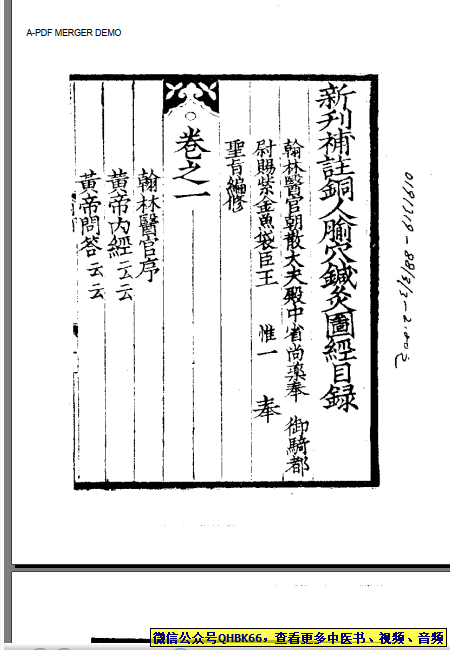 A-PDF MERGER DEMO
新刋補註銅人腧穴鍼灸圖經目録
翰林醫官朝散大夫殿中省尚藥奉 御騎都
尉賜紫金魚袋臣王 惟一 奉
聖旨編修
卷之一
翰林醫官序
黄帝内經云云
黄帝問答云云
微信公众号QHBK66，查看更多中医书、视频、音频